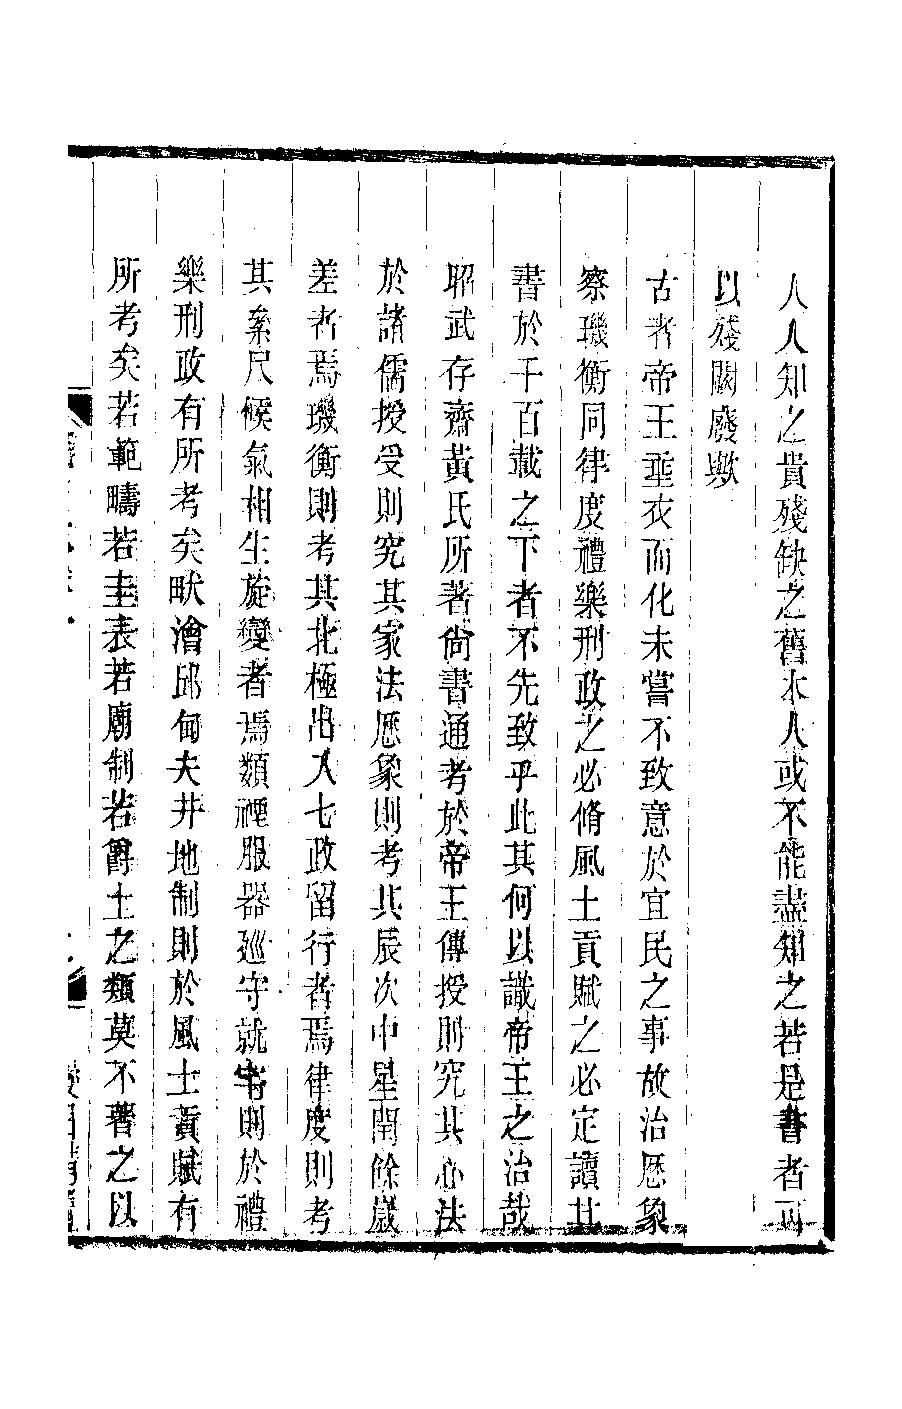 人人知之貴殘缺之舊本人或不能盡知之若是書者可
以殘闕廢歟
古者帝王垂衣而化未嘗不致意於宜民之事故治厯象
察璣衡同律度禮樂刑政之必脩風土貢賦之必定讀其
書於千百載之下者不先致乎此其何以識帝王之治哉
昭武存齋黃氏所著尙書通考於帝王傳授則究其心法
於諸儒授受則究其家法厯象則考其辰次中星閏餘歲
差者焉璣衡則考其北極出入七政留行者焉律度則考
其絫尺候氣相生旋變者焉類禋服器巡守就宅則於禮
樂刑政有所考矣畎澮邱甸夫井地制則於風土貢賦有
所考矣若範疇若圭表若廟制若爵土之類莫不著之以